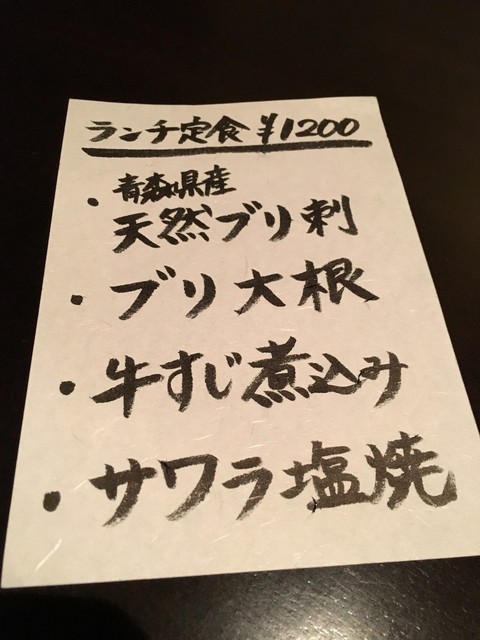 ランチ定食 ¥1200
・青森県産
天然ブリ刺
・ブリ大根
・牛すじ煮込み
・サワラ塩焼